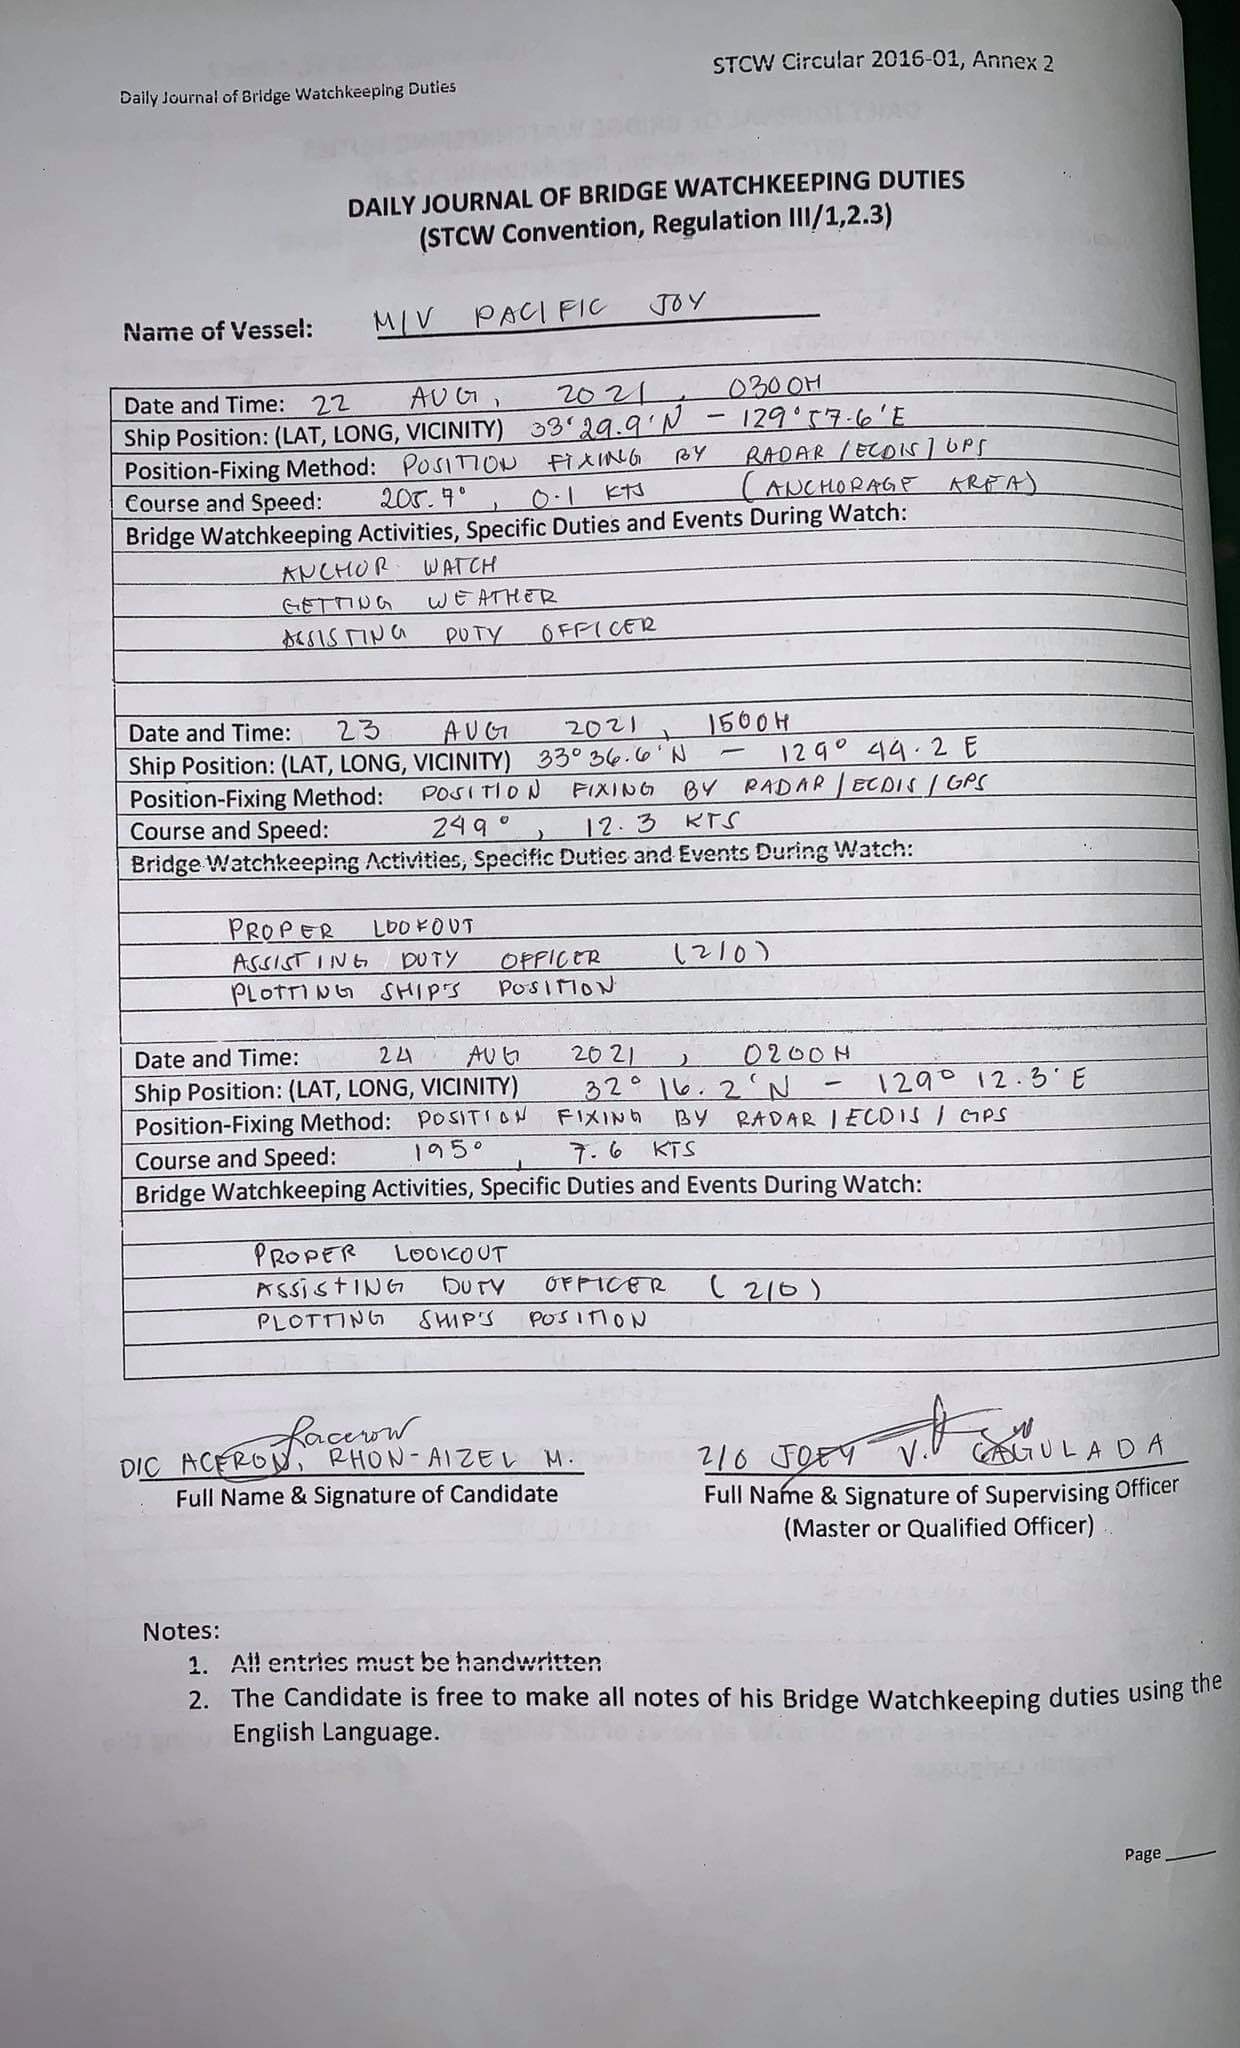 STCW Circular 2016-01, Annex 2
Daily Journal of Bridge Watchkeeping Duties
DAILY JOURNAL OF BRIDGE WATCHKEEPING DUTIES
(STCW Convention, Regulation III/1,2.3)
Name of Vessel: M/V PACIFIC JOY
Date and Time: 22 AUG, 2021, 0300H
Ship Position: (LAT, LONG, VICINITY) 33°29.9'N - 129°57.6'E
Position-Fixing Method: POSITION FIXING BY RADAR / ECDIS / GPS
Course and Speed: 205.9°, 0.1 KTS (ANCHORAGE AREA)
Bridge Watchkeeping Activities, Specific Duties and Events During Watch:
ANCHOR WATCH
GETTING WEATHER
ASSISTING DUTY OFFICER
Date and Time: 23 AUG 2021, 1500H
Ship Position: (LAT, LONG, VICINITY) 33° 36.6'N - 129° 44.2 E
Position-Fixing Method: POSITION FIXING BY RADAR / ECDIS / GPS
Course and Speed: 249°, 12.3 KTS
Bridge Watchkeeping Activities, Specific Duties and Events During Watch:
PROPER LOOKOUT
ASSISTING DUTY OFFICER (2/O)
PLOTTING SHIP'S POSITION
Date and Time: 24 AUG 2021, 0200H
Ship Position: (LAT, LONG, VICINITY) 32° 16.2'N - 129° 12.3'E
Position-Fixing Method: POSITION FIXING BY RADAR / ECDIS / GPS
Course and Speed: 195°, 7.6 KTS
Bridge Watchkeeping Activities, Specific Duties and Events During Watch:
PROPER LOOKOUT
ASSISTING DUTY OFFICER (2/O)
PLOTTING SHIP'S POSITION
Racerow
D/C ACERON, RHON-AIZEL M. 2/O JOEY V. CAGULADA
Full Name & Signature of Candidate Full Name & Signature of Supervising Officer
(Master or Qualified Officer)
Notes:
1. All entries must be handwritten
2. The Candidate is free to make all notes of his Bridge Watchkeeping duties using the
English Language.
Page